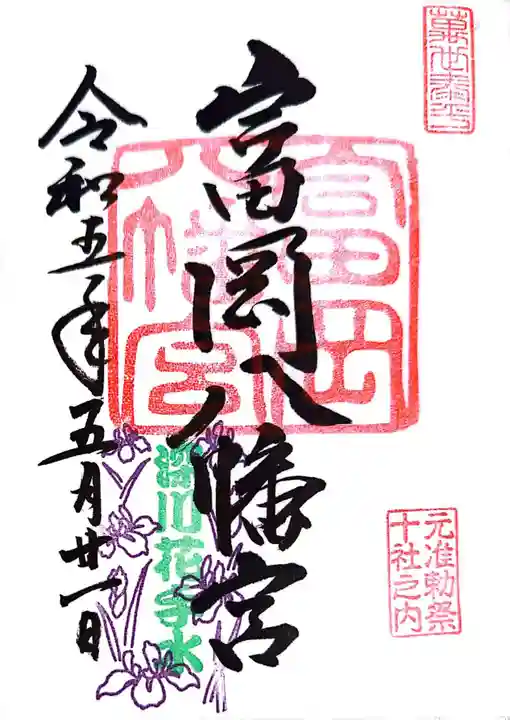 萬世泰平
富岡八幡宮
富岡八幡宮
元准勅祭
十社之内
深川花手水
令和五年五月廿一日